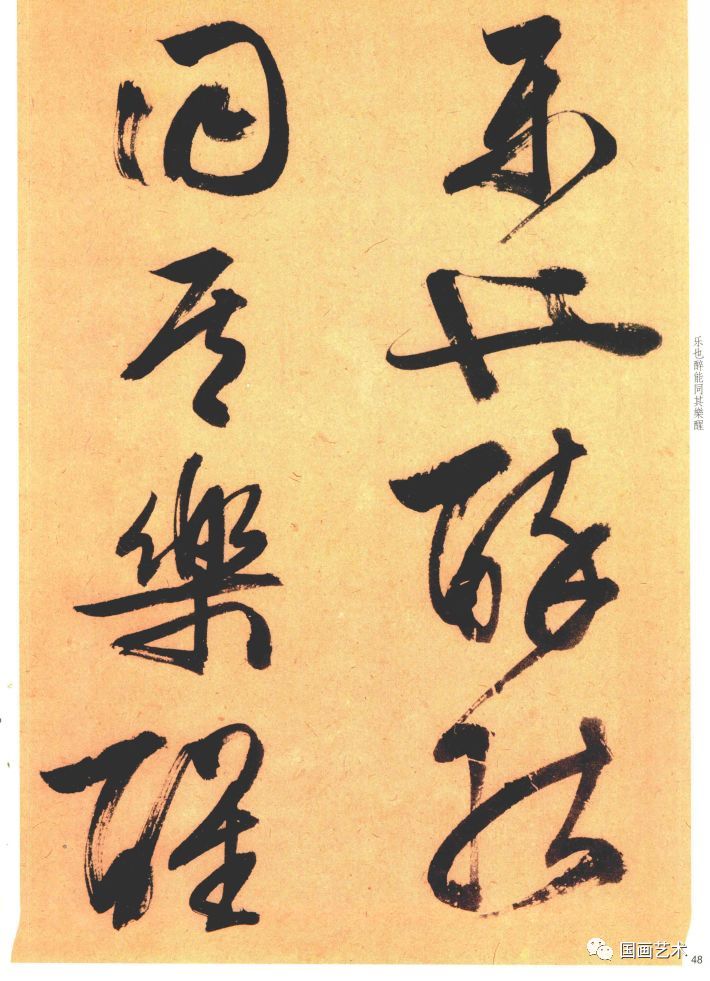 乐也醉能
同其樂醒
乐也醉能同其樂醒
国画艺术
48